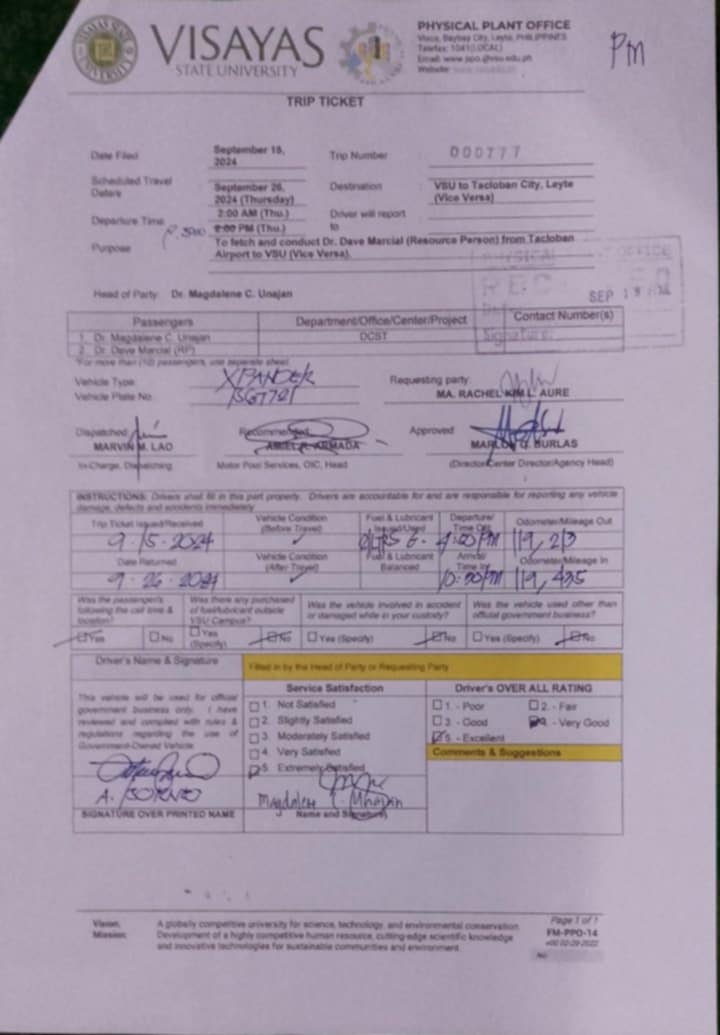 VISAYAS
STATE UNIVERSITY
PHYSICAL PLANT OFFICE
Visca, Baybay City, Leyte, PHILIPPINES
Telefax: 1041 (LOCAL)
Email: www.ppo@vsu.edu.ph
Website:
Pm
TRIP TICKET
Date Filed September 18, 2024 Trip Number 000777
Scheduled Travel Date/s September 26, 2024 (Thursday) Destination VSU to Tacloban City, Leyte (Vice Versa)
Departure Time 2:00 AM (Thu.) Driver will report to
PM (Thu.)
Purpose To fetch and conduct Dr. Dave Marcial (Resource Person) from Tacloban
Airport to VSU (Vice Versa).
PHYSICAL PLANT OFFICE
SEP
Signature:
Head of Party: Dr. Magdalene C. Unajan
Passengers Department/Office/Center/Project Contact Number(s)
1. Dr. Magdalene C. Unajan DCST
2. Dr. Dave Marcial (RP)
*For more than (10) passengers, use separate sheet.
Vehicle Type: XPANDER Requesting party:
Vehicle Plate No. MA. RACHEL KIM L. AURE
Dispatched Recommended Approved
MARVIN M. LAO ARMADA BURLAS
In-Charge, Dispatching Motor Pool Services, OIC, Head (Director/Center Director/Agency Head)
INSTRUCTIONS: Drivers shall fill in this part properly. Drivers are accountable for and are responsible for reporting any vehicle
damage, defects and accidents immediately
Trip Ticket Issued/Received Vehicle Condition (Before Travel) Fuel & Lubricant Issued/Used Departure/ Time Out Odometer/Mileage Out
4:00 PM 119, 213
Date Returned Vehicle Condition (After Travel) Fuel & Lubricant Balanced Arrival/ Time In Odometer/Mileage In
9-26-2024 119, 435
Was the passenger/s following the call time & location? Was there any purchased of fuel/lubricant outside VSU Campus? Was the vehicle involved in accident or damaged while in your custody? Was the vehicle used other than official government business?
Yes No Yes (Specify) No Yes (Specify) No Yes (Specify) No
Driver's Name & Signature Filled in by the Head of Party or Requesting Party
This vehicle will be used for official
government business only. I have
reviewed and complied with rules &
regulations regarding the use of
Government-Owned Vehicle
Service Satisfaction
1. Not Satisfied
2. Slightly Satisfied
3. Moderately Satisfied
4. Very Satisfied
5. Extremely Satisfied
Driver's OVER ALL RATING
1 - Poor 2 - Fair
3 - Good 4 - Very Good
5 - Excellent
Comments & Suggestions
SIGNATURE OVER PRINTED NAME
Magdalene C. Unajan
Name and Signature
Vision: A globally competitive university for science, technology, and environmental conservation
Mission: Development of a highly competitive human resource, cutting-edge scientific knowledge
and innovative technologies for sustainable communities and environment.
Page 1 of 1
FM-PPO-14
v00 02-29-2022
No